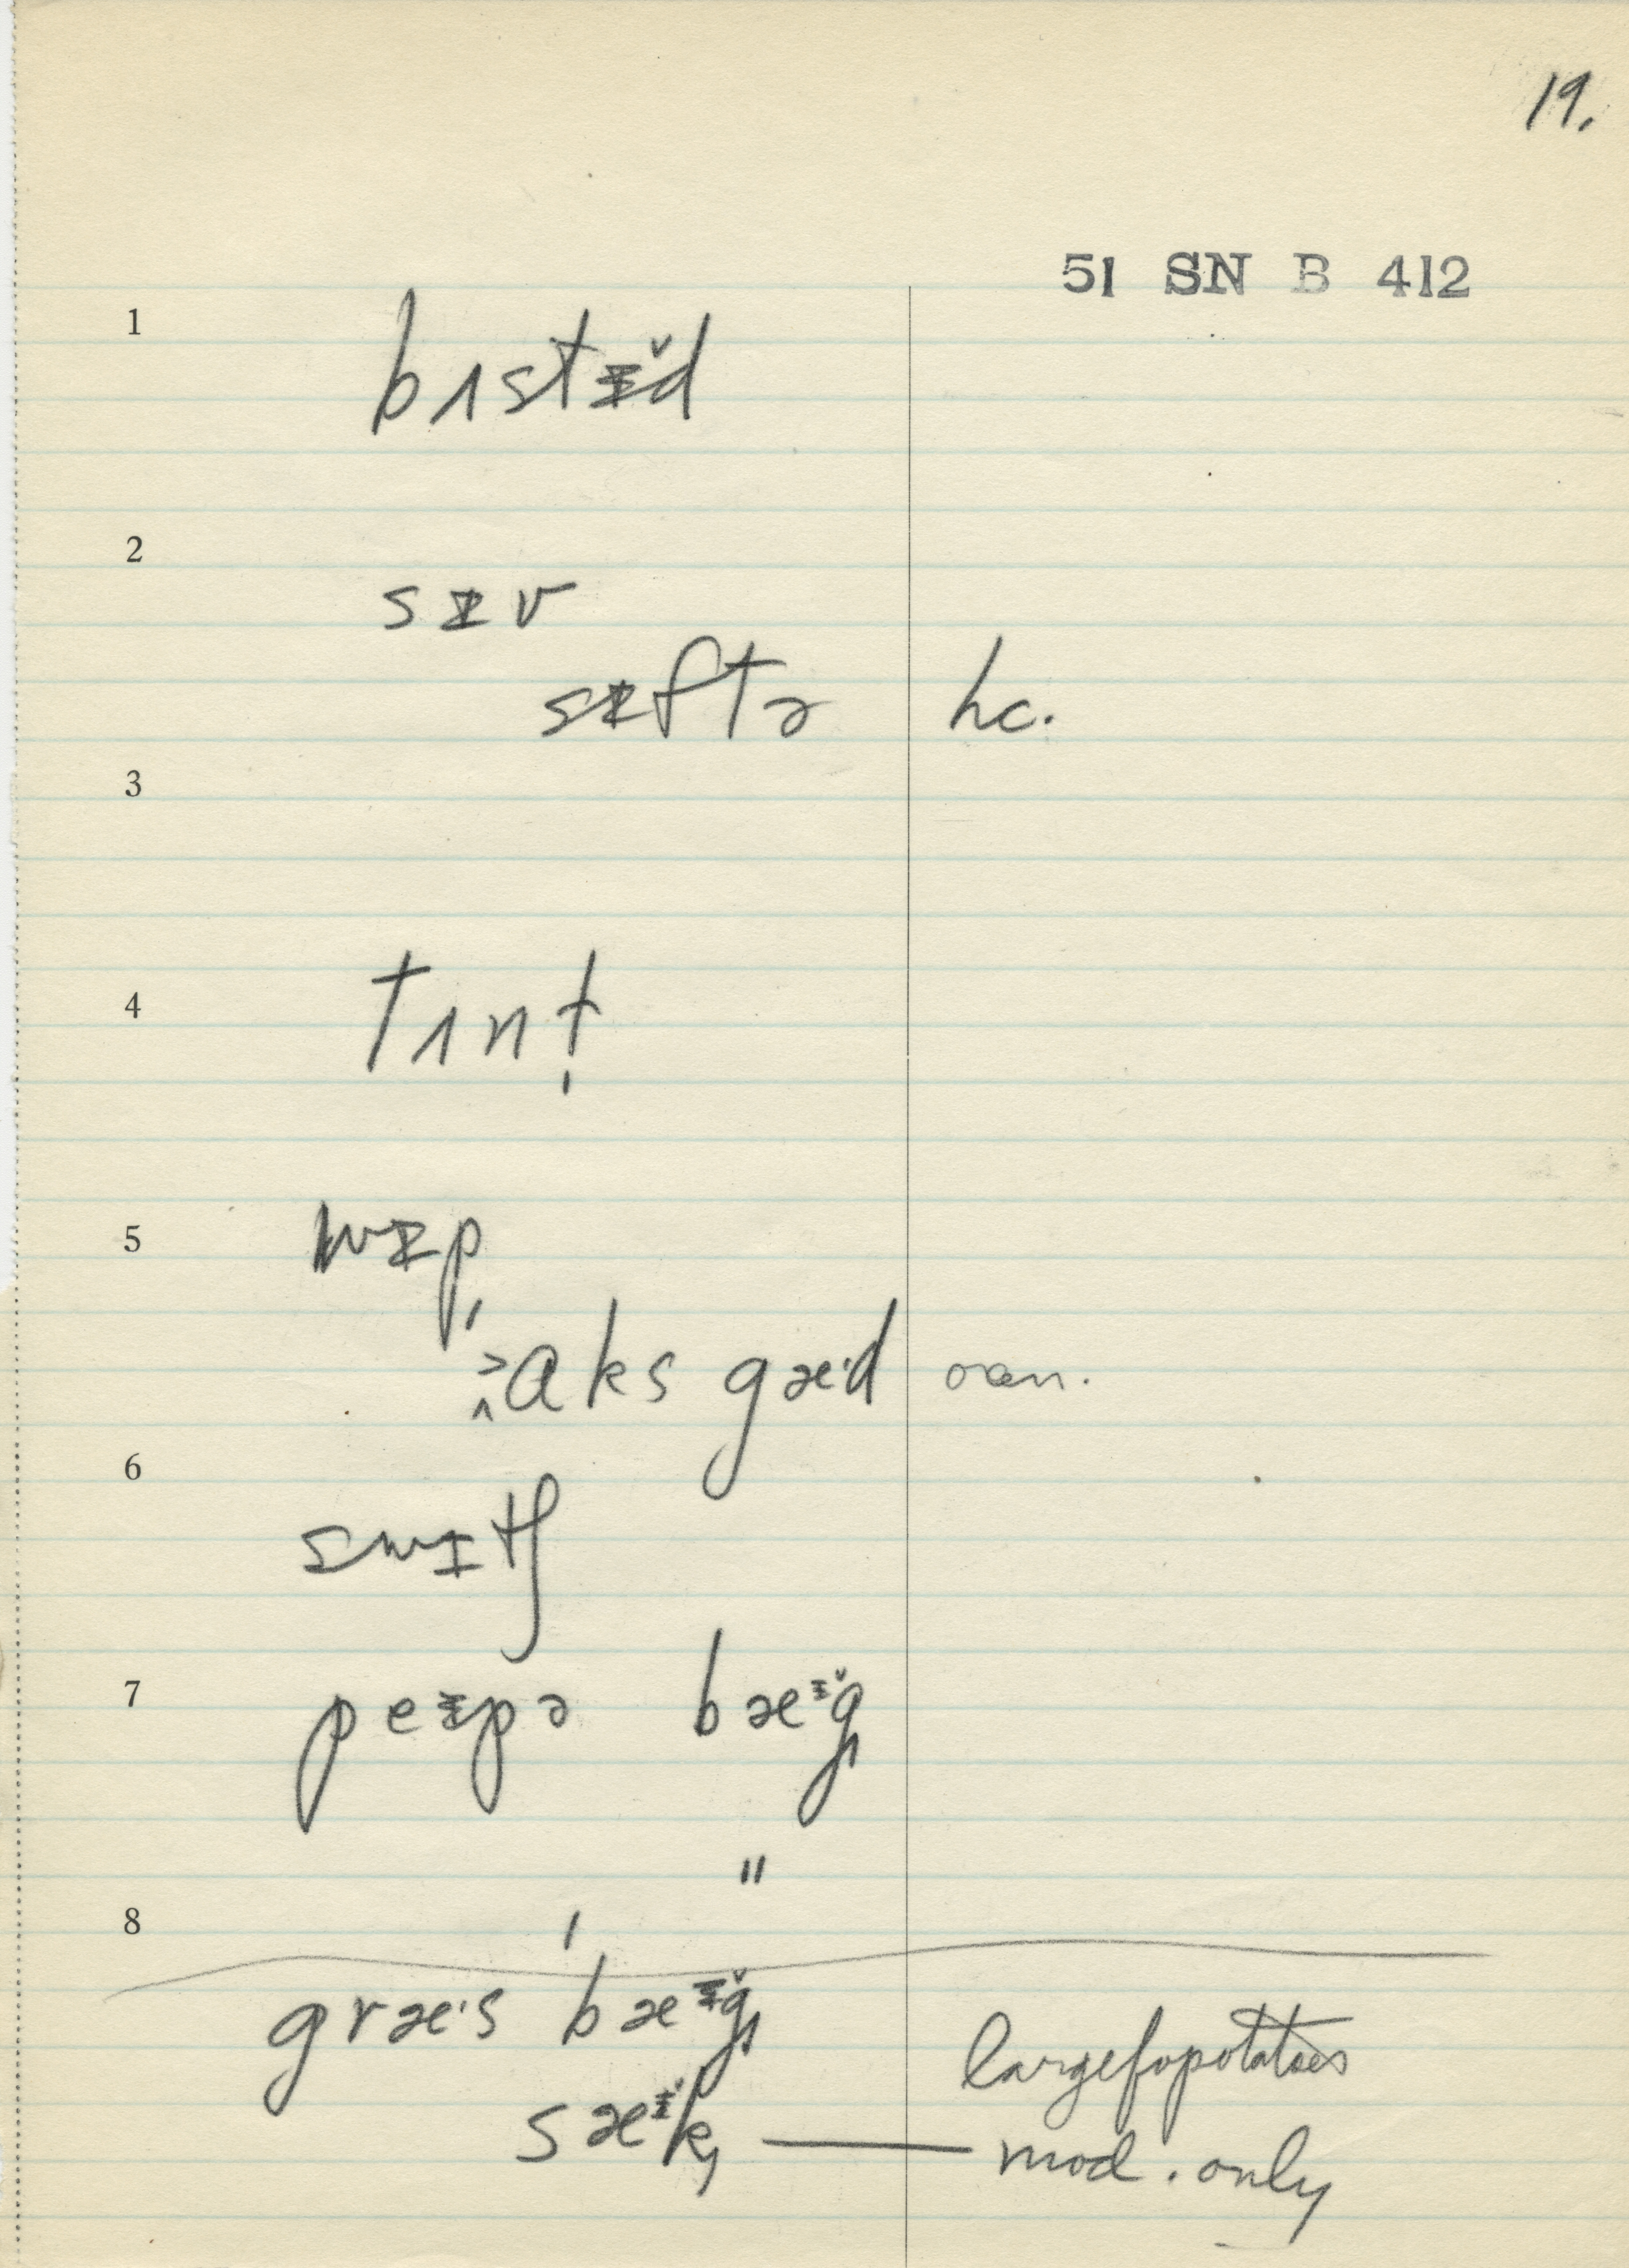 19.
51 SN B 412
1
bʌstɪ̵̆d
2
sɪ̵v
sɪ̵ftə hc.
3
4
tʌnt̩
5
wɪ̵p̩
aks gæ·d
6
swɪtʃ
7
peɪ̵pə bæɪ̵̆g̩
"
8
græ·s ˈbæɪ̵̆g̩
largefopotatoes
sæɪ̵̆k̩ — mod. only